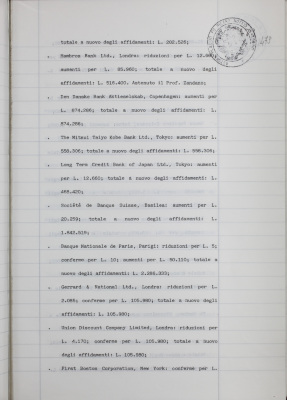 totale a nuovo degli affidamenti: L. 262.525;
. Hambros Bank Ltd., Londra: riduzioni per L.
aumenti per L. 86.962; totale a nuovo degli
affidamenti: L. 516.400. Astenuto il Prof.
. Den Danske Bank Aktieselskab, Copenhagen: aumenti per
L. 574.286; totale a nuovo degli affidamenti: L.
574.286;
. The Mitsui Taiyo Kobe Bank Ltd., Tokyo: aumenti per L.
558.306; totale a nuovo degli affidamenti: L. 558.306;
. Long Term Credit Bank of Japan Ltd., Tokyo: aumenti
per L. 12.862; totale a nuovo degli affidamenti: L.
455.420;
. Société de Banque Suisse, Basilea: aumenti per L.
20.259; totale a nuovo degli affidamenti: L.
1.643.519;
. Banque Nationale de Paris, Parigi: riduzioni per L. 5;
conferme per L. 10; aumenti per L. 50.110; totale a
nuovo degli affidamenti: L. 2.286.333;
. Gerrard & National Ltd., Londra: riduzioni per L.
2.055; conferme per L. 105.880; totale a nuovo degli
affidamenti: L. 105.880;
. Union Discount Company Limited, Londra: riduzioni per
L. 4.170; conferme per L. 105.882; totale a nuovo
degli affidamenti: L. 105.882;
. First Boston Corporation, New York: conferme per L.